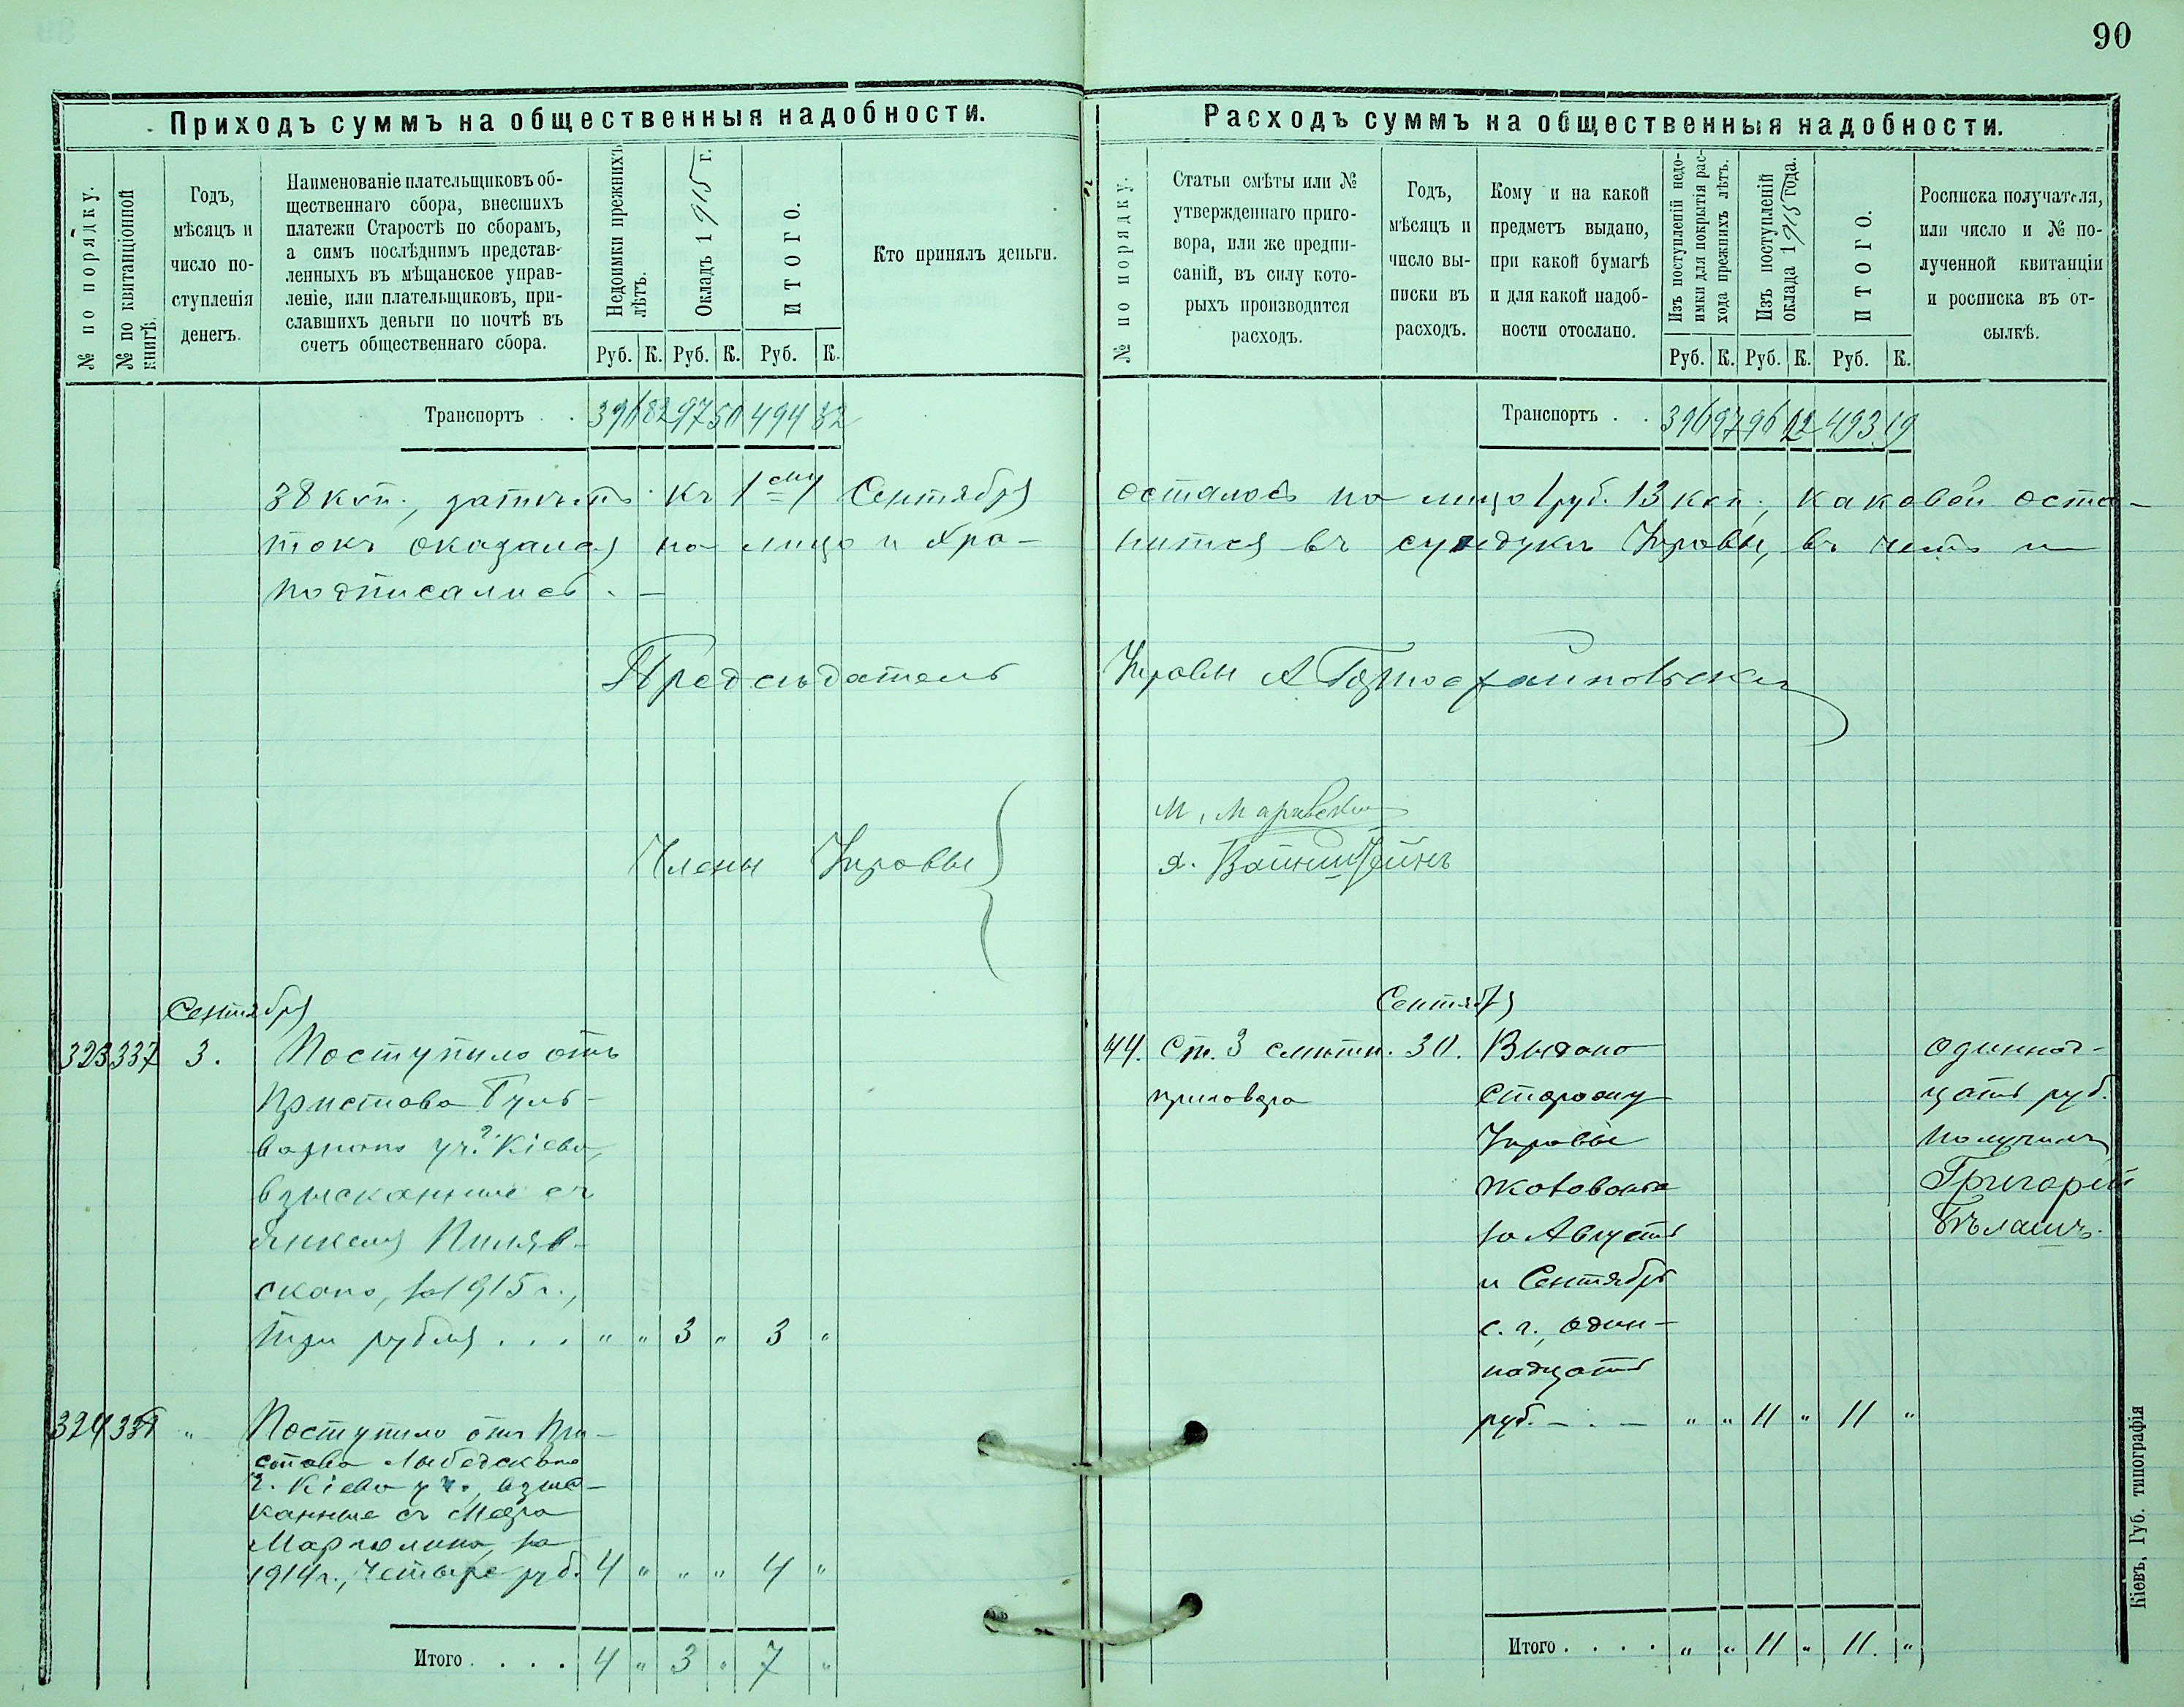 90
Приходъ суммъ на общественныя надобности.
№ по порядку.
№ по квитанціонной
книгѣ.
Годъ,
мѣсяцъ и
число по-
ступленія
денегъ.
Наименованіе плательщиковъ об-
щественнаго сбора, внесшихъ
платежи Старостѣ по сборамъ,
а симъ послѣднимъ представ-
ленныхъ въ мѣщанское управ-
леніе, или плательщиковъ, при-
славшихъ деньги по почтѣ въ
счетъ общественнаго сбора.
Недоимки прежнихъ
лѣтъ.
Окладъ 1915 г.
ИТОГО.
Руб. К. Руб. К. Руб. К.
Кто принялъ деньги.
Транспортъ . . 396 82 97 50 494 32
38 коп., затѣмъ къ 1ому Сентября
токъ оказался на лицо и хра-
подписались. —
Предсѣдатель
Члены Управы
Сентября
323 337 3. Поступило отъ
Пристава Буль-
варнаго уч. г. Кіева,
взысканные съ
Пиляв-
скаго, за 1915 г.,
три рубля . . . " " 3 " 3 "
324 " Поступило отъ При-
става Лыбедскаго
г. Кіева уч., взыс-
канные съ Меера
Марголина, за
1914 г., Четыре руб. 4 " " " 4 "
Итого . . . . 4 " 3 " 7 "
Расходъ суммъ на общественныя надобности.
№ по порядку.
Статьи смѣты или №
утвержденнаго приго-
вора, или же предпи-
саній, въ силу кото-
рыхъ производится
расходъ.
Годъ,
мѣсяцъ и
число вы-
писки въ
расходъ.
Кому и на какой
предметъ выдано,
при какой бумагѣ
и для какой надоб-
ности отослано.
Изъ поступленій недо-
имки для покрытія рас-
хода прежнихъ лѣтъ.
Изъ поступленій
оклада 1915 года.
ИТОГО.
Руб. К. Руб. К. Руб. К.
Росписка получателя,
или число и № по-
лученной квитанціи
и росписка въ от-
сылкѣ.
Транспортъ . . 396 97 96 22 493 19
осталось на лицо 1 руб. 13 коп., каковой оста-
нится въ сундукѣ Управы, въ чемъ и
Управы А
М.
Я. Вайнштейнъ
Сентября
44. Ст. 3 смѣтн. 30. Выдано
приговора
Сторожу
Управы
жалованья
за Августъ
и Сентябрь
с. г., один-
надцать
руб. — . — " " 11 " 11 "
одиннад-
цать руб.
получилъ
Григорій
Бѣлашъ.
Итого . . . . " " 11 " 11. "
Кіевъ, Губ. типографія